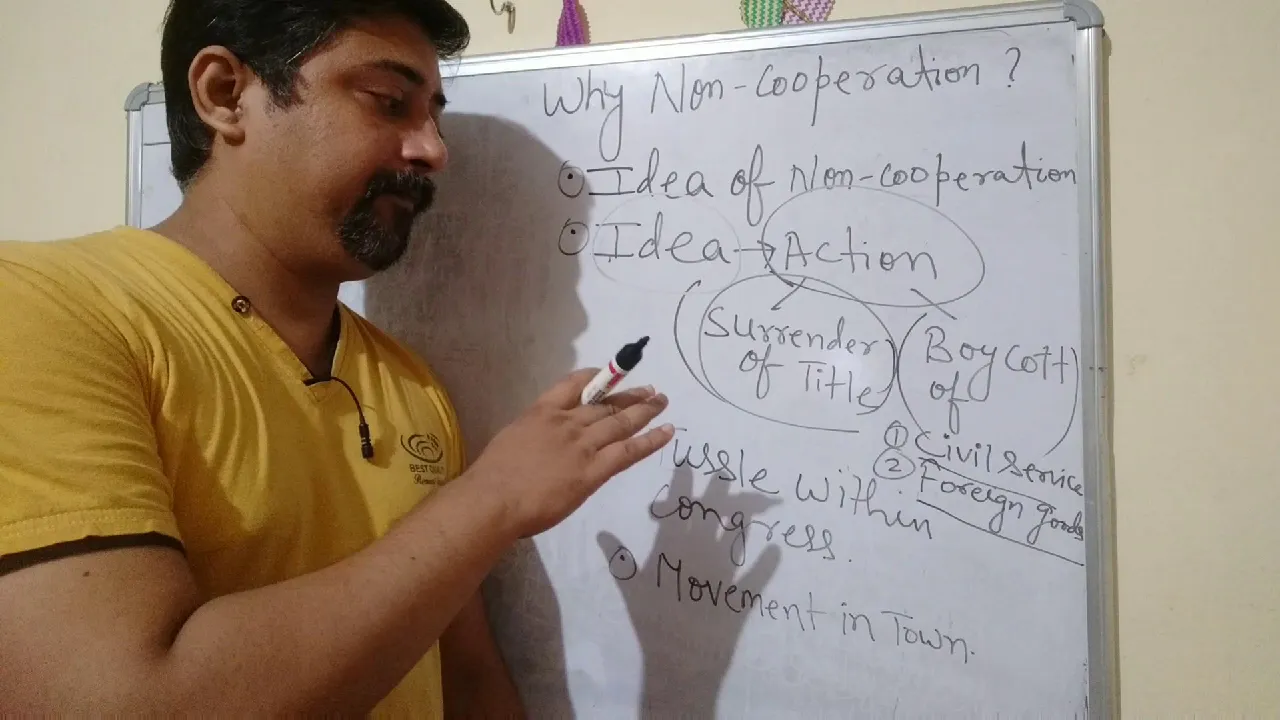 Why Non-cooperation ?
Idea of Non-cooperation
Idea → Action
Surrender
of Title
Boycott
of
① Civil Service
② Foreign goods
Tussle within
congress.
Movement in Town.
BEST